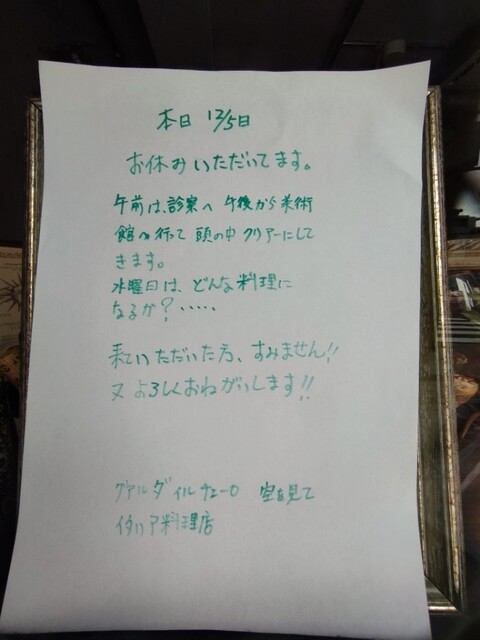 本日 12/5日
お休みいただいてます。
午前は、診察へ 午後から美術
館へ行って 頭の中 クリアーにして
きます。
水曜日は、どんな料理に
なるか?‥‥‥
来ていただいた方、すみません!!
又よろしくおねがいします!!
グアルダイルチェーロ 空を見て
イタリア料理店